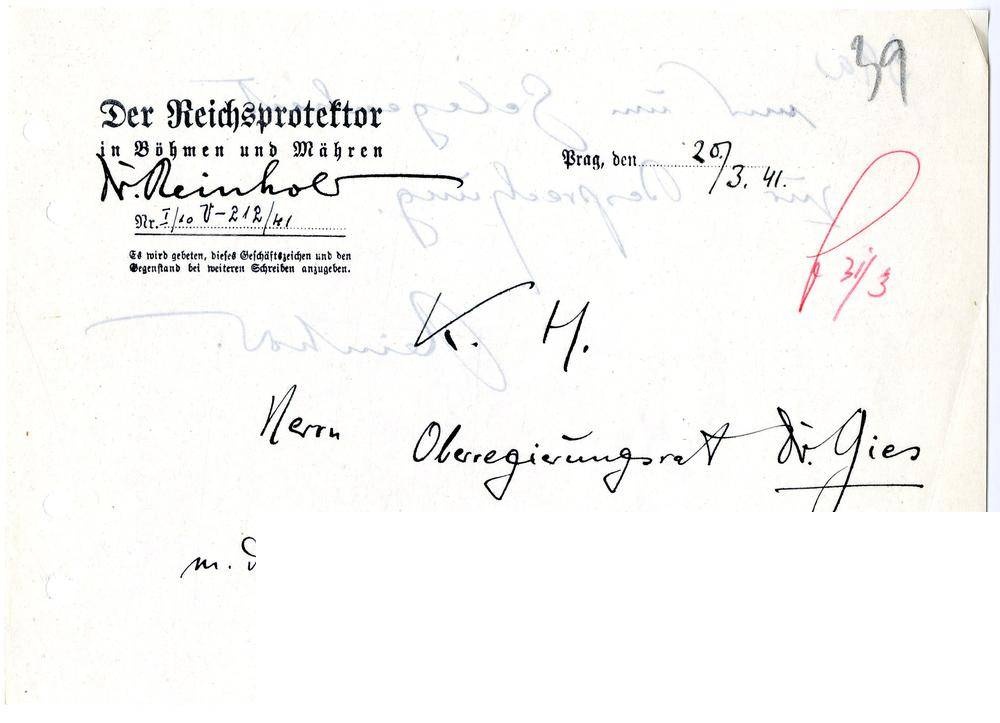 39
Der Reichsprotektor
in Böhmen und Mähren
Dr. Reinhold
Nr. I/10 V-212/41
Prag, den 20/3. 41.
Es wird gebeten, dieses Geschäftszeichen und den
Gegenstand bei weiteren Schreiben anzugeben.
31/3
K. H.
Herrn Oberregierungsrat Dr. Gies
m.